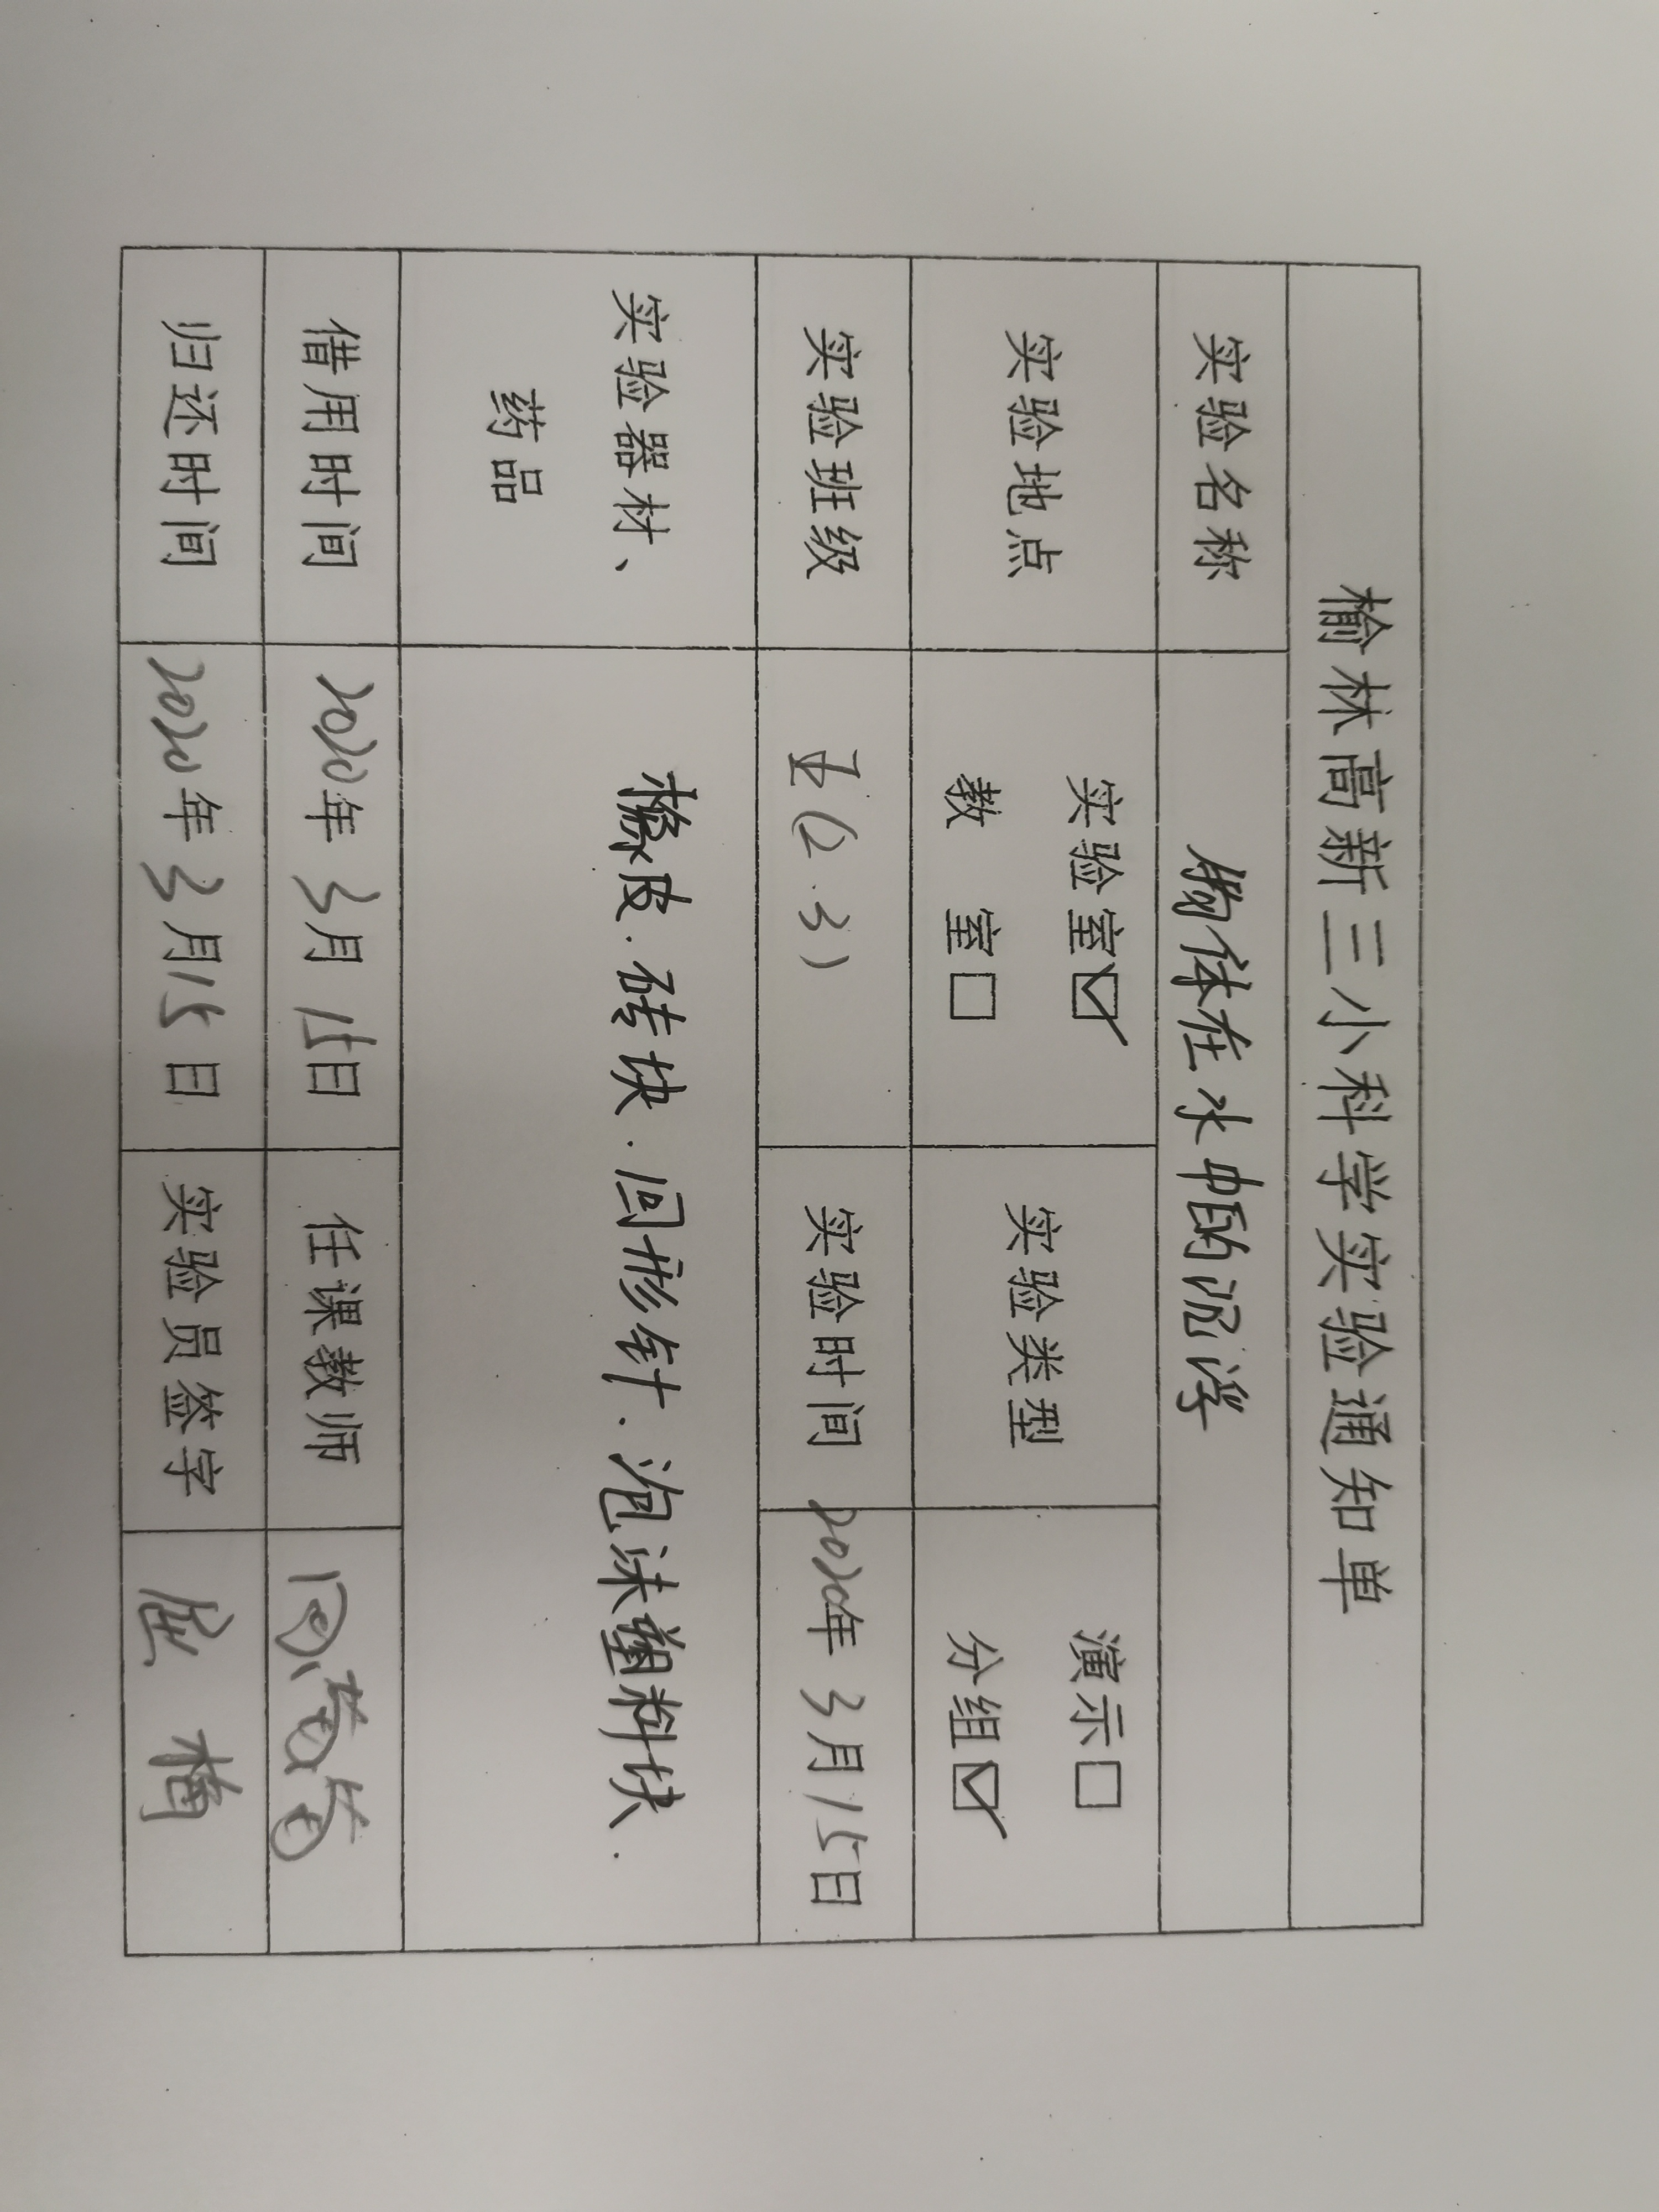 榆林高新三小科学实验通知单
实验名称 物体在水中的沉浮
实验地点 实验室☑ 教 室□ 实验类型 演示□ 分组☑
实验班级 五(2.3) 实验时间 2020年3月15日
实验器材、药品 橡皮.砖块.回形针.泡沫塑料块.
借用时间 2020年3月15日 任课教师
归还时间 2020年3月15日 实验员签字